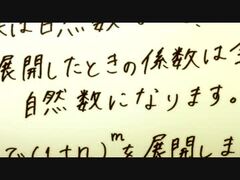 は自然数
展開したときの係数は全
自然数になります。
で(1+n)^m を展開しま